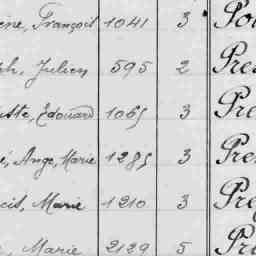 ène, François 1041 3 Po
ph, Julien 595 2 Pre
uste, Edouard 1065 3 Pre
é, Ange, Marie 1285 3 Pre
cis, Marie 1210 3 Pre
, Marie 2129 5 Pre